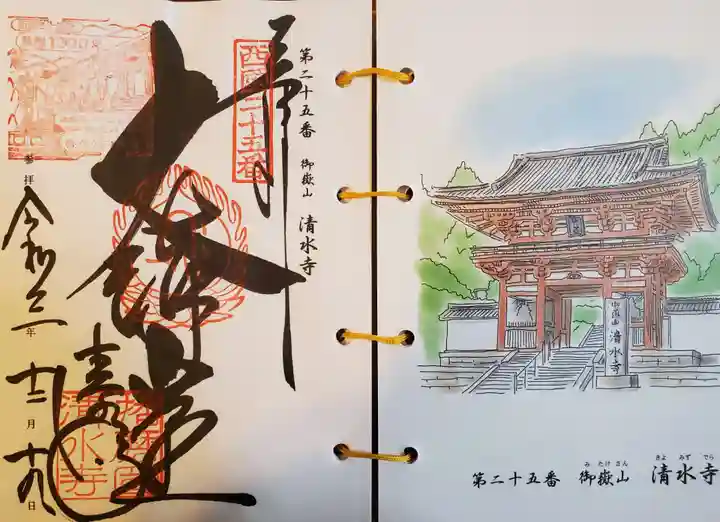 奉拝
西国二十五番
第二十五番 御嶽山 清水寺
大講堂
清水寺
播磨国
清水寺
参拝
令和三年 十二月 十九日
御嶽山 清水寺
第二十五番 御嶽山 清水寺
み たけ さん きよ みず でら